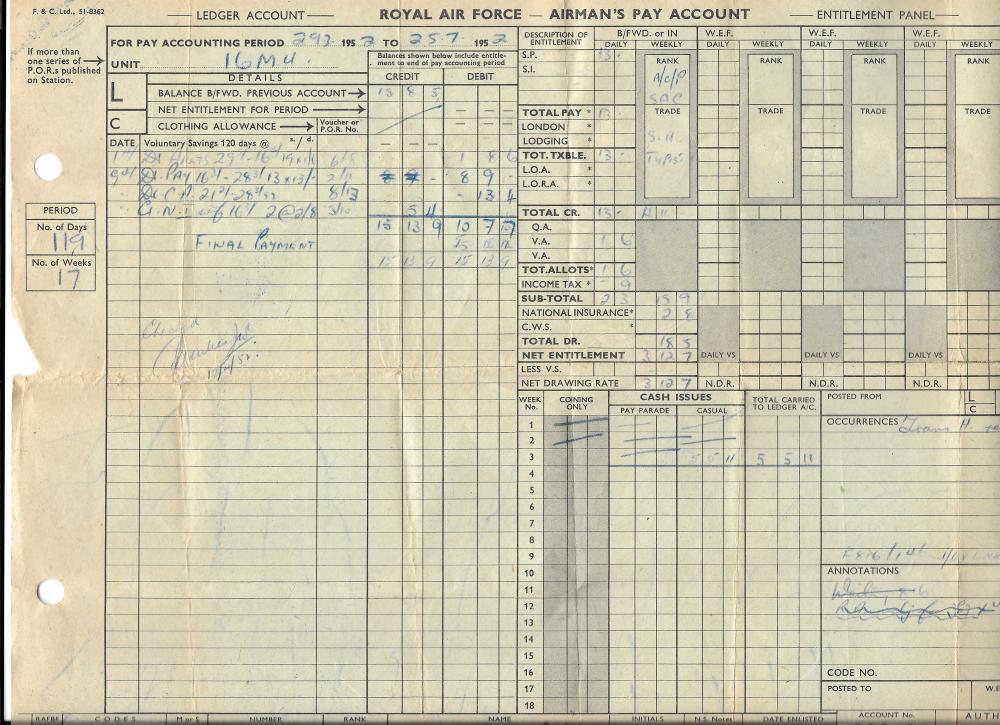 F. & C. Ltd., 51-8362
LEDGER ACCOUNT ROYAL AIR FORCE — AIRMAN'S PAY ACCOUNT ENTITLEMENT PANEL
If more than one series of P.O.R.s published on Station.
FOR PAY ACCOUNTING PERIOD 29.3. 1952 TO 25.7. 1952
UNIT 16 MU.
Balance shown below include entitlement to end of pay accounting period
DETAILS CREDIT DEBIT
L BALANCE B/FWD. PREVIOUS ACCOUNT 15 8 5
NET ENTITLEMENT FOR PERIOD — —
C CLOTHING ALLOWANCE Voucher or P.O.R. No. — —
DATE Voluntary Savings 120 days @ s. / d. — — — — — —
1 8 6
Dr. PAY 16/3 - 28/3 13 x 13/- 2/11 8 9 -
Dr. C.A. 21/2 - 28/3/52 8/13 - 13 4
2 @ 2/8 3/10 5 4
15 13 9 10 7 10
FINAL PAYMENT
15 13 9 15 13 9
Checked
PERIOD
No. of Days
119
No. of Weeks
17
DESCRIPTION OF ENTITLEMENT B/FWD. or IN W.E.F. W.E.F. W.E.F.
DAILY WEEKLY DAILY WEEKLY DAILY WEEKLY DAILY WEEKLY
S.P. 13 -
S.I.
RANK RANK RANK RANK
A/c/p
SAC
TOTAL PAY * 13 -
TRADE TRADE TRADE TRADE
LONDON *
LODGING *
TOT. TXBLE. 13 -
L.O.A. *
L.O.R.A. *
TOTAL CR. 13 - 4 11 -
Q.A.
V.A. 1 6
V.A.
TOT. ALLOTS * 1 6
INCOME TAX * - 9
SUB-TOTAL 2 3 15 9
NATIONAL INSURANCE * 2 8
C.W.S. *
TOTAL DR. 18 5
NET ENTITLEMENT 3 12 7 DAILY VS DAILY VS DAILY VS
LESS V.S.
NET DRAWING RATE 3 12 7 N.D.R. N.D.R. N.D.R.
WEEK No. COINING ONLY CASH ISSUES TOTAL CARRIED TO LEDGER A/C.
PAY PARADE CASUAL
1
2
3 5 5 11 5 5 11
4
5
6
7
8
9
10
11
12
13
14
15
16
17
18
POSTED FROM L
C
OCCURRENCES
ANNOTATIONS
CODE NO.
POSTED TO W.E
RAFBF CODES M or S NUMBER RANK NAME INITIALS N.S. Notes DATE ENLISTED ACCOUNT No. AUTH